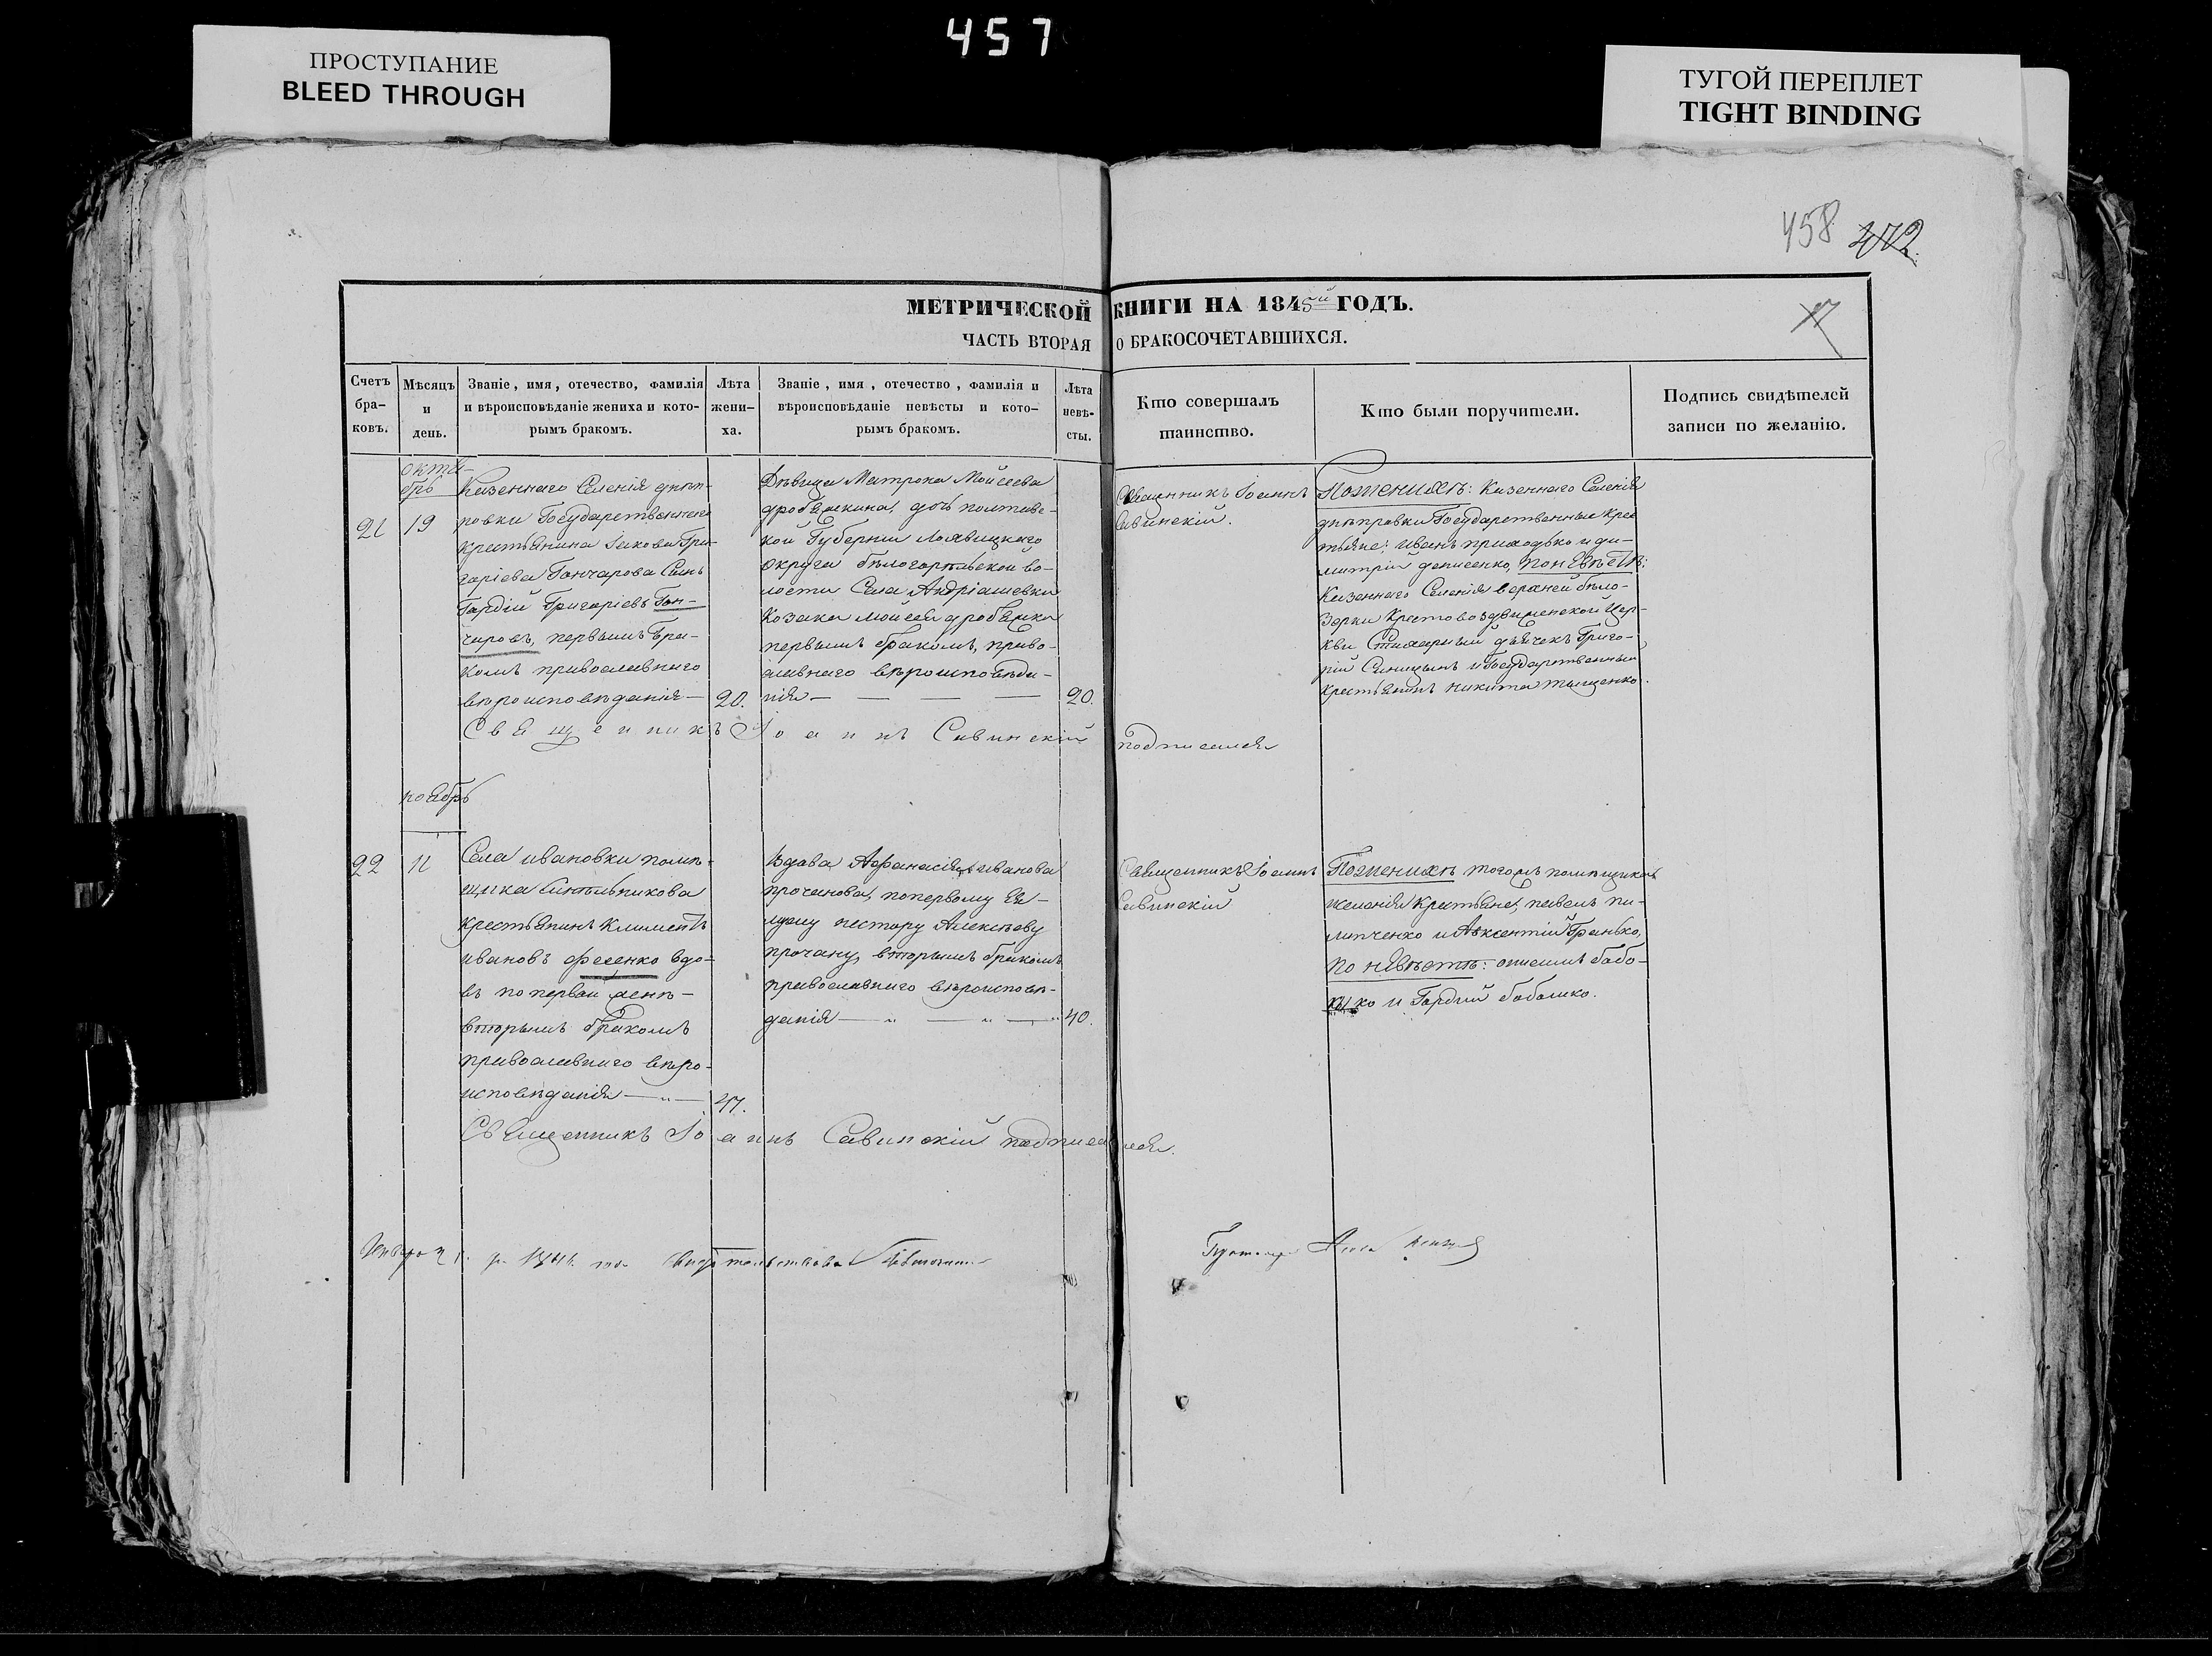 457
ПРОСТУПАНИЕ
BLEED THROUGH
ТУГОЙ ПЕРЕПЛЕТ
TIGHT BINDING
458 472
МЕТРИЧЕСКОЙ КНИГИ НА 1845й ГОДЪ.
17
ЧАСТЬ ВТОРАЯ О БРАКОСОЧЕТАВШИХСЯ.
Счетъ
бра-
ковъ.
Мѣсяцъ
и
день.
Званіе, имя, отечество, фамилія
и вѣроисповѣданіе жениха и кото-
рымъ бракомъ.
Лѣта
жени-
ха.
Званіе, имя, отечество, фамилія и
вѣроисповѣданіе невѣсты и кото-
рымъ бракомъ.
Лѣта
невѣ-
сты.
Кто совершалъ
таинство.
Кто были поручители.
Подпись свидѣтелей
записи по желанію.
октя-
брь
21
19
Казеннаго Селенія днѣп-
ровки Государственнаго
крестьянина Іакова Гри-
горіева Гончарова Сынъ
Гордій Григоріевъ Гон-
чаровъ, первымъ бра-
комъ православнаго
вѣроисповѣданія—
20.
Дѣвица Матрона Мойсеева
дробязкина, дочь полтавс-
кой Губерніи Лохвицкаго
округа бѣлогорѣльской во-
лости Села Андріашевки
Козака Мойсея дробязка
первымъ бракомъ, право-
славнаго вѣроисповѣда-
нія—
20.
Священникъ Іоаннъ
Савинскій.
По женихѣ: Казеннаго Селенія
днѣпровки Государственные крес
тьяне: иванъ приходько и ди-
митрій денисенко, по невѣстѣ:
Казеннаго Селенія верхней бѣло-
зорки Крестовоздвиженской Цер-
кви Стихарный дьячекъ Григо-
рій Синицынъ и Государственный
крестьянинъ никита тищенко.
Священникъ Іоаннъ Савинскій подписался
ноябрь
22
11
Села ивановки помѣ-
щика Синѣльникова
крестьянинъ Климентъ
ивановъ фесенко вдо-
въ по первой женѣ—
вторымъ бракомъ
православнаго вѣро-
исповѣданія—
47.
Вдова Афанасія иванова
прочанова, по первому Ея
мужу нестору Алексѣеву
прочану, вторымъ бракомъ
православнаго вѣроисповѣ-
данія—
40.
Священникъ Іоаннъ
Савинскій
По женихѣ тогожъ помѣщика
имѣнія Крестьяне, павелъ пи-
липченко и Авксентій Гранько,
по невѣстѣ: онисимъ бабо-
шко и Гордій бабошко.
Священникъ Іоаннъ Савинскій подписался.